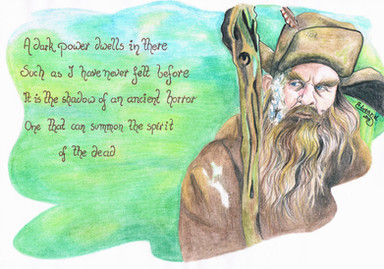 A dark power dwells in there
Such as I have never felt before
It is the shadow of an ancient horror
One that can summon the spirit
of the dead